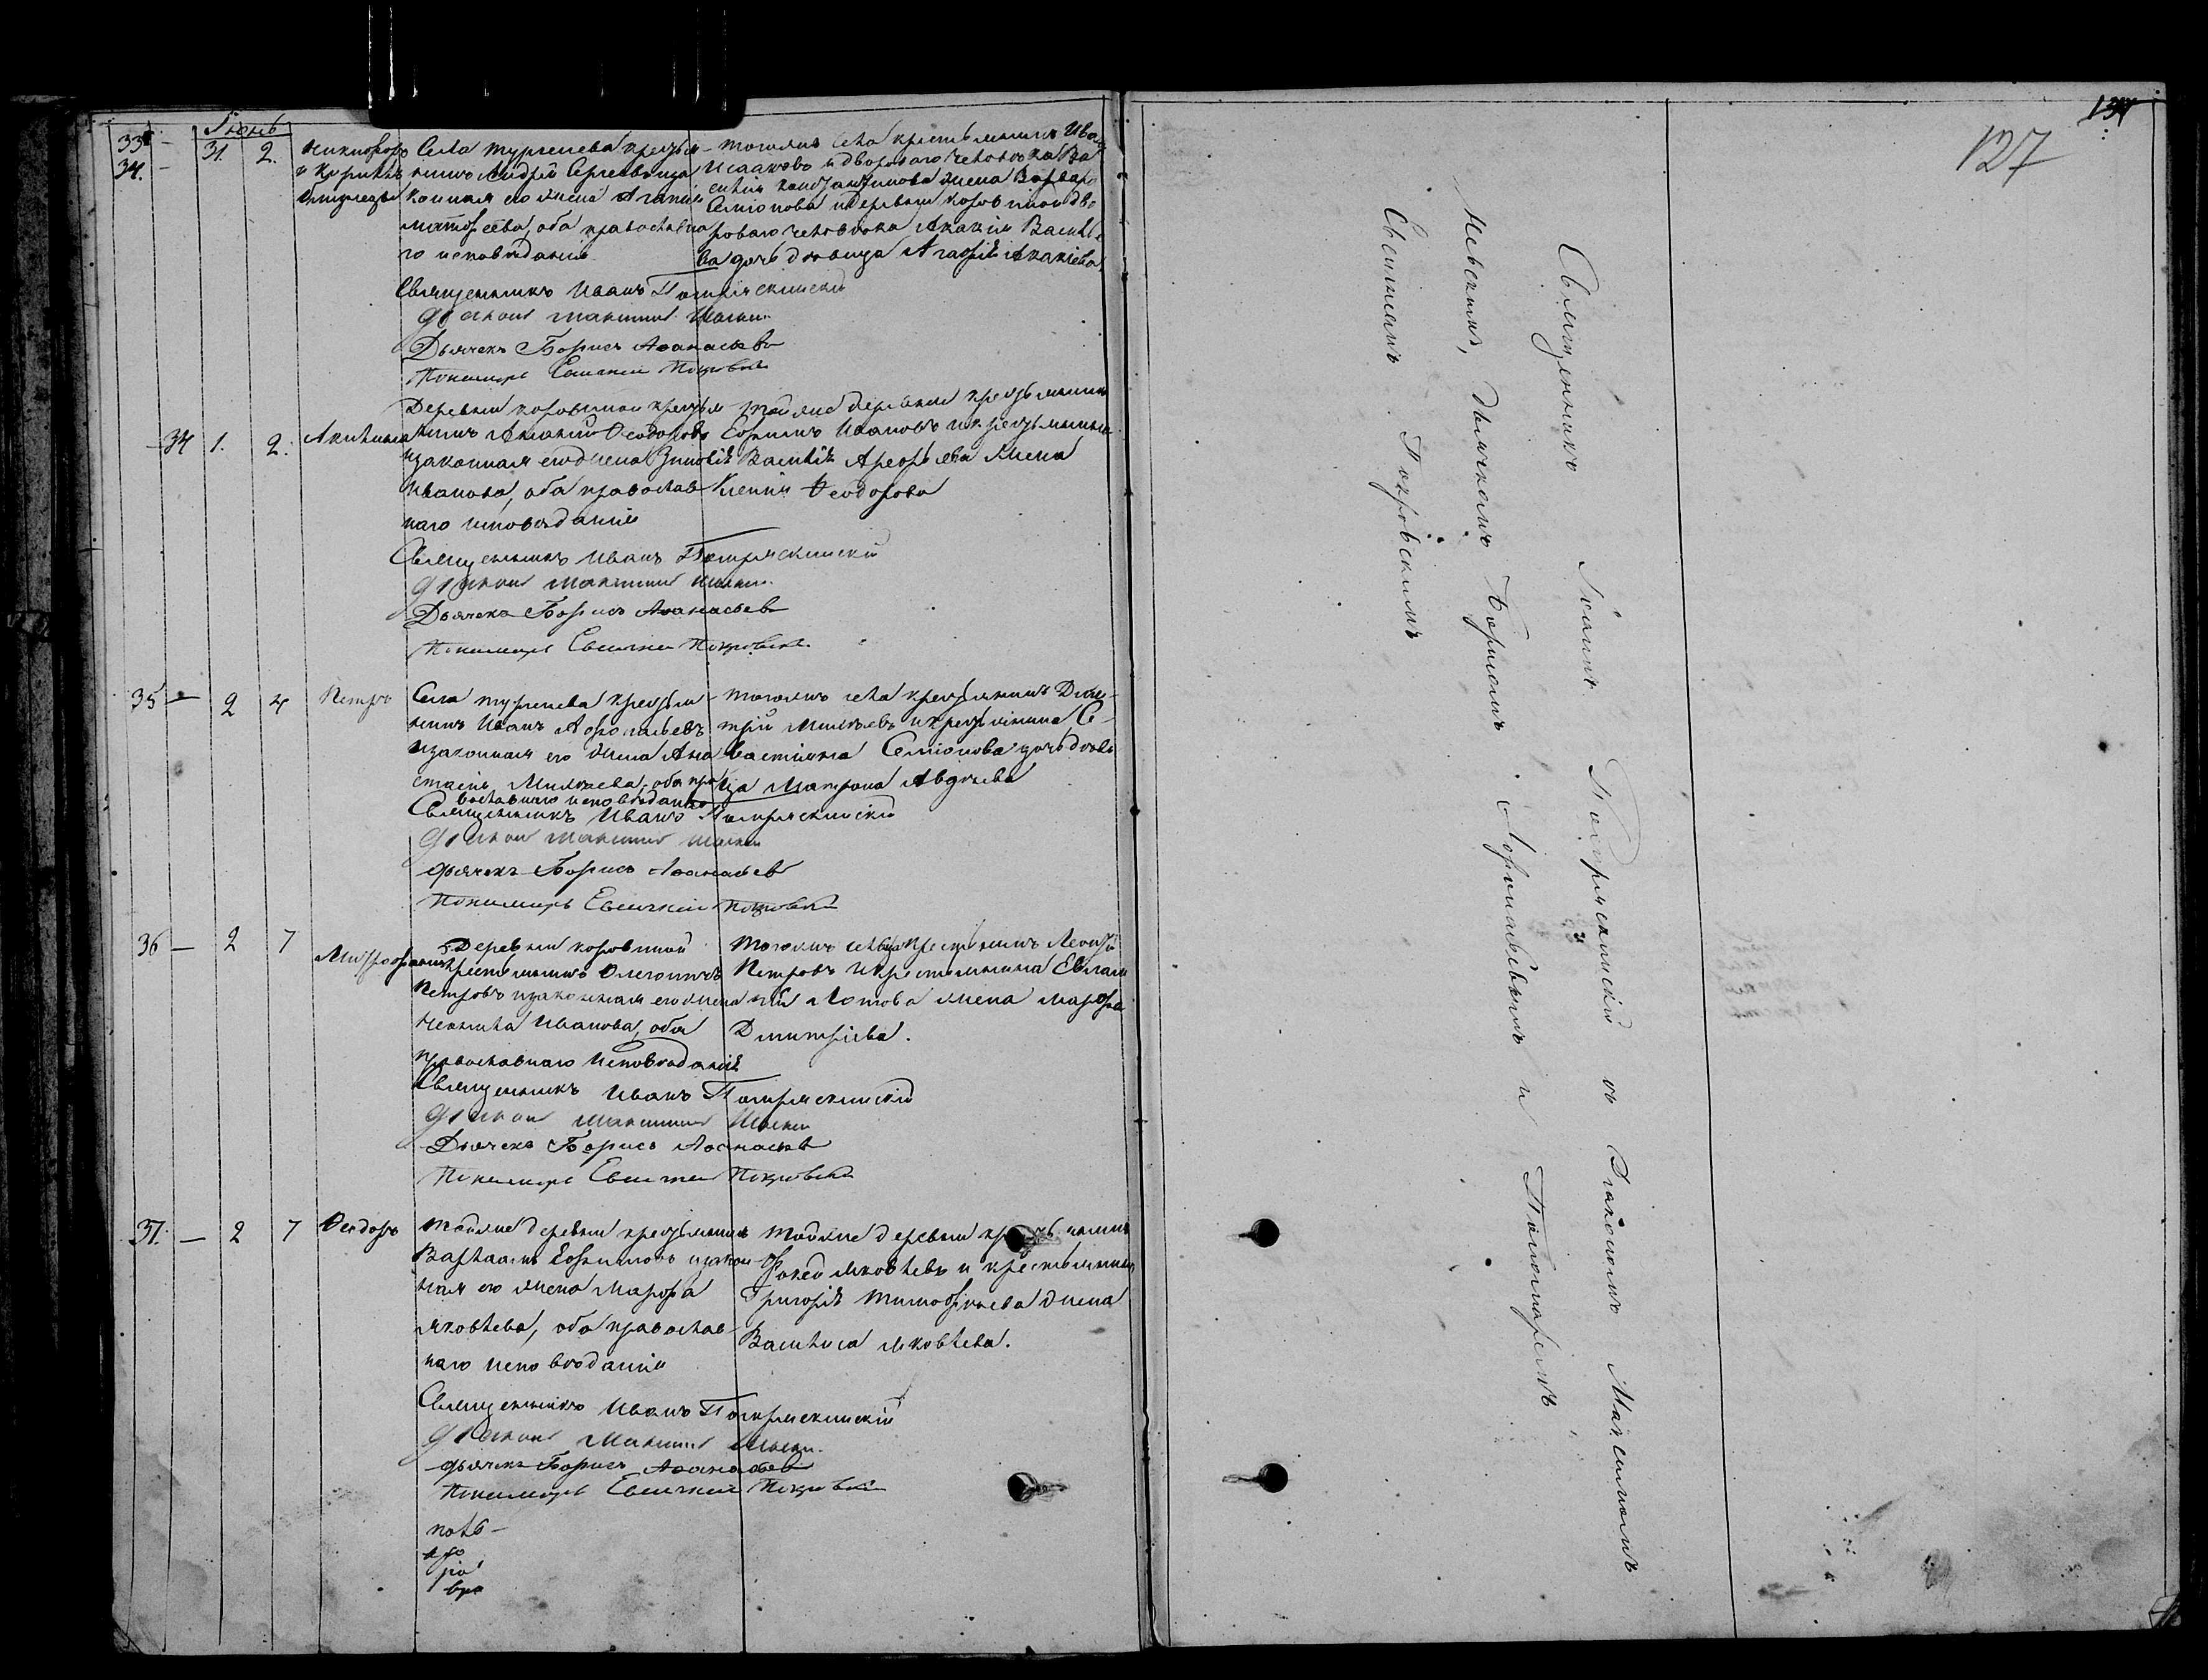 Іюнь
33 -
34. -
31. 2.
Никифоръ
и Кирикъ
близнецы
Села тургенева крестья-
нинъ Андрей Сергеевъ и за
конная его жена Агапія
матвеева, оба православна
го исповѣданія.
тогожъ села крестьянинъ Иванъ
Исааковъ и двороваго человѣка Ва
силія константинова жена Варвара
Семіонова и деревни коровиной дво
роваго человѣка Акакія Василье
ва дочь дѣвица Агафія Акакіева
Священникъ Иванъ Потряскинскій
Діаконъ Максимъ
Дьячекъ Борисъ Афанасьевъ
Пономарь Евсигній Покровскій
34 1. 2. Акилина
Деревни коровиной крестья
нинъ Ананій Феодоровъ
и законная его жена Зиновія
Иванова, оба православ
наго исповѣданія
тойже деревни крестьянинъ
Ефимъ Ивановъ и крестьянина
Василія Арефьева жена
Ксенія Феодорова
Священникъ Иванъ Потряскинскій
Діаконъ Максимъ
Дьячекъ Борисъ Афанасьевъ
Пономарь Евсигній Покровскій
35 - 2 4 Петръ
Села тургенева крестья-
нинъ Иванъ Афонасьевъ
и законная его жена Ана
стасія Михѣева, оба пра
вославнаго исповѣданія
тогожъ села крестьянинъ Дими-
трій Михѣевъ и крестьянина Се-
вастіяна Семіонова дочь дѣви
ца Матрона Авдѣева
Священникъ Иванъ Потряскинскій
Діаконъ Максимъ
дьячекъ Борисъ Афанасьевъ
Пономарь Евсигній Покровскій
36 - 2 7 Митрофанъ
Деревни коровиной
крестьянинъ
Петровъ и законная его жена
Неонила Иванова, оба
Православнаго Исповѣданія
тогожъ села крестьянинъ Леонтій
Петровъ и крестьянина Евлам
пія Лотова жена марфа
Дмитріева.
Священникъ Иванъ Потряскинскій
Діаконъ Максимъ
Дьячекъ Борисъ Афанасьевъ
Пономарь Евсигній Покровскій
37. - 2 7 Феодоръ
тойже деревни крестьянинъ
Варлаамъ Ефимовъ и закон
ная его жена Марфа
яковлева, оба православ
наго исповѣданія
тойже деревни крестьянинъ
Фокей яковлевъ и крестьянина
Григорія тимофеева жена
Василиса яковлева.
Священникъ Иванъ Потряскинскій
Діаконъ Максимъ
дьячекъ Борисъ Афанасьевъ
Пономарь Евсигній Покровскій
127
Священникъ Іоаннъ Потряскинскій съ Діакономъ Максимомъ
Невскимъ, дьячкомъ Борисомъ Афонасьевымъ и Пономаремъ
Евсигніемъ Покровскимъ